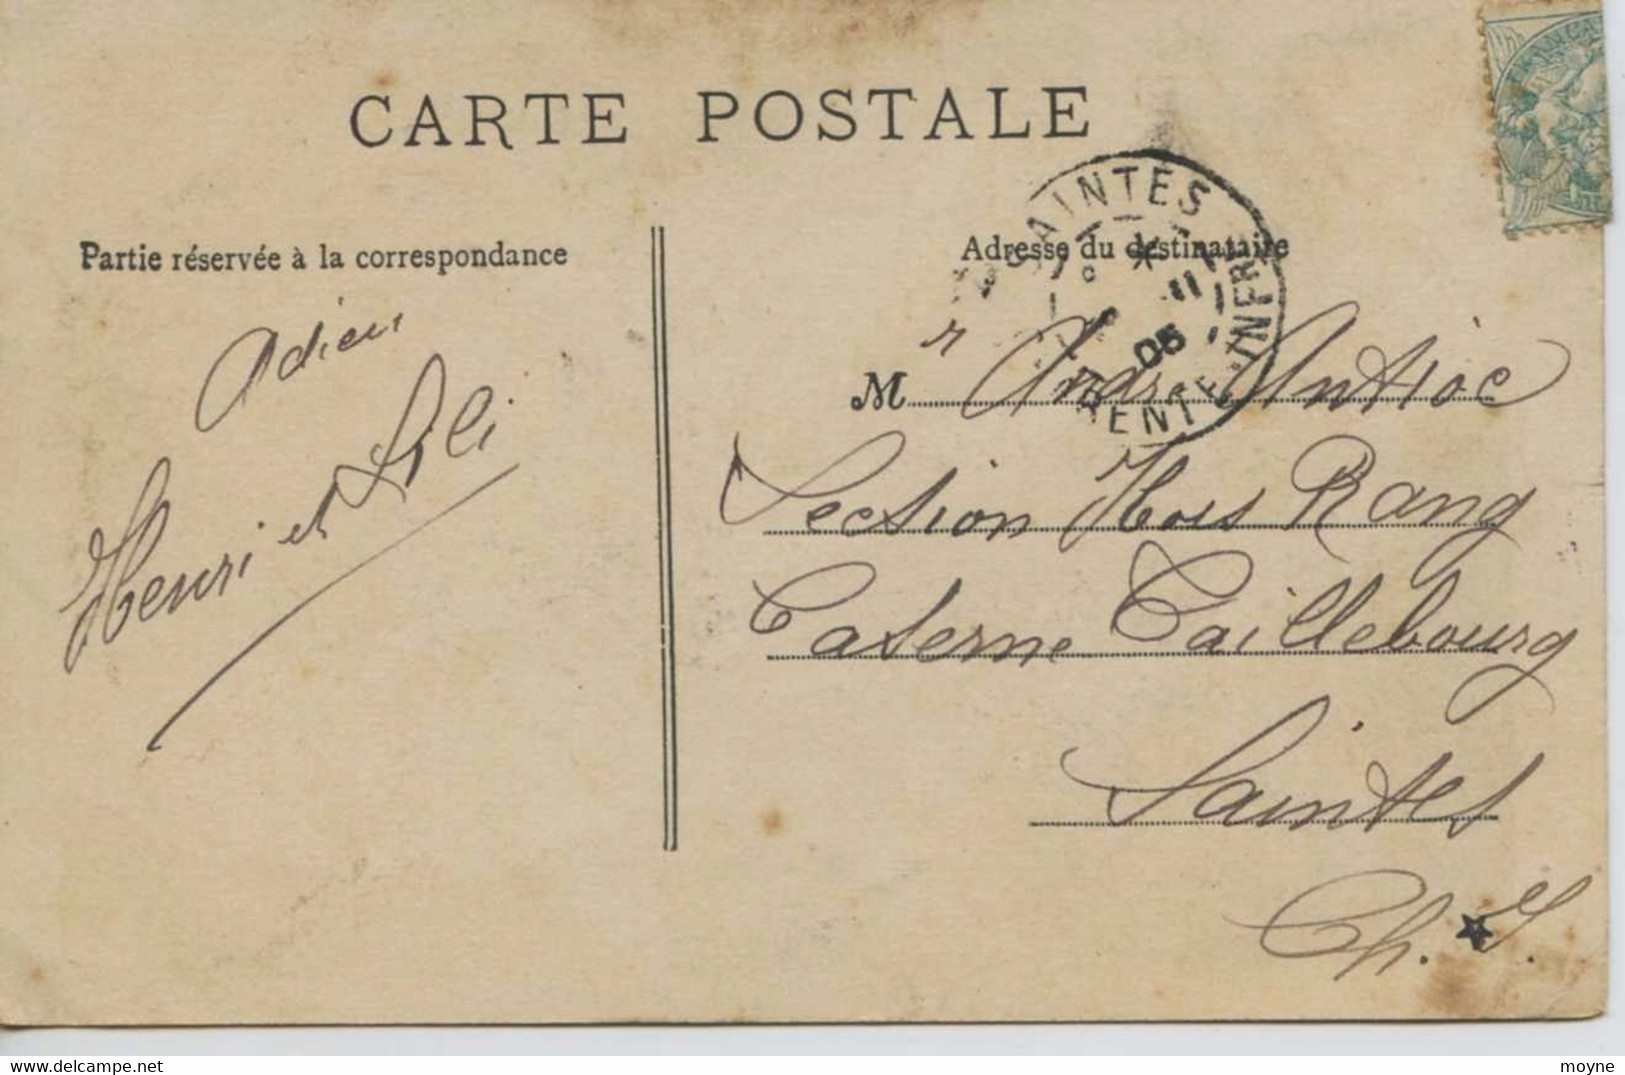 CARTE POSTALE
Partie réservée à la correspondance
Adieu
Henri et Lili
SAINTES
11
05
ENTE-INFRE
Adresse du destinataire
M r André Antioc
Section Hors Rang
Caserne Taillebourg
Saintes
Ch. I.
moyne